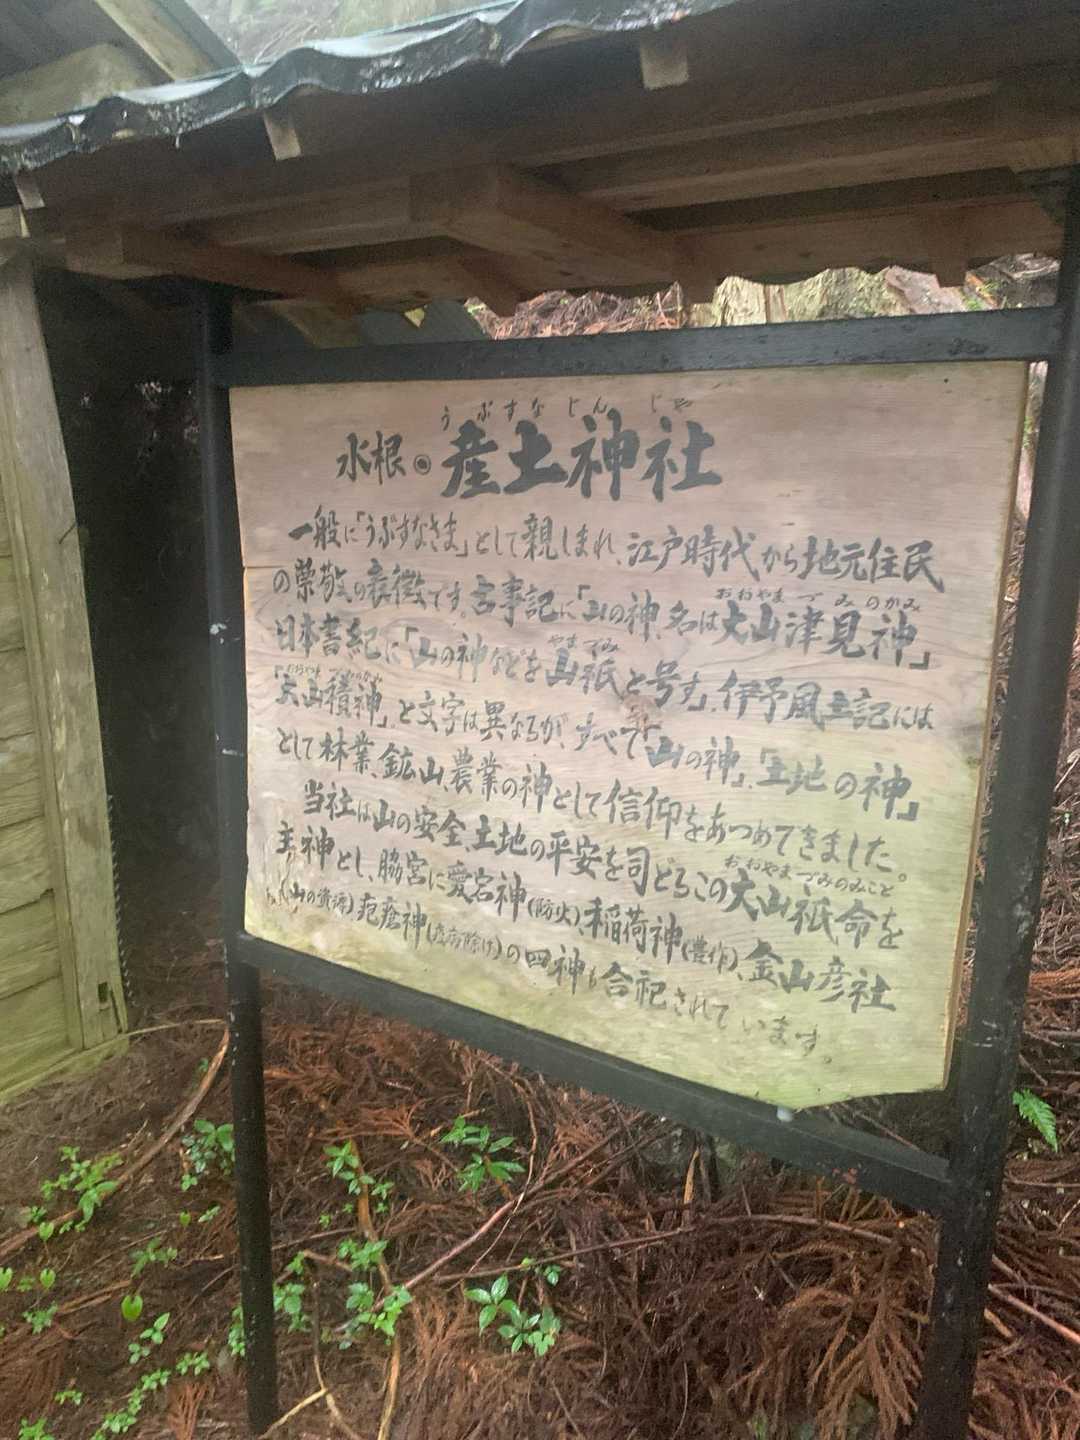 うぶすなじんじゃ
水根◉産土神社
一般に「うぶすなさま」として親しまれ、江戸時代から地元住民
の崇敬の表徴です。古事記に「山の神、名は大山津見神」
おおやまづみのかみ
日本書紀に「山の神などを山祇と号す」、伊予風土記には
やまづみ
「大山積神」と文字は異なるが、すべて「山の神」、「土地の神」
おおやまづみのかみ
として林業、鉱山、農業の神として信仰をあつめてきました。
当社は山の安全、土地の平安を司どるこの大山祇命を
おおやまづみのみこと
主神とし、脇宮に愛宕神(防火)、稲荷神(豊作)、金山彦社
(山の資源)疱瘡神(疫病除け)の四神も合祀されています。